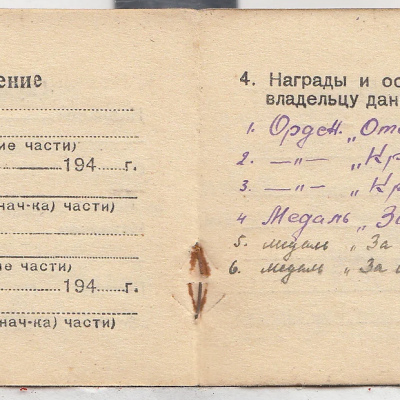 ение
ие части)
194 г.
нач-ка) части)
ие части)
194 г.
нач-ка) части)
4. Награды и ос
владельцу дан
1. Орден „Оте
2. —„— „Кр
3. —„— „Кр
4 Медаль „За
5. медаль „За
6. медаль „За